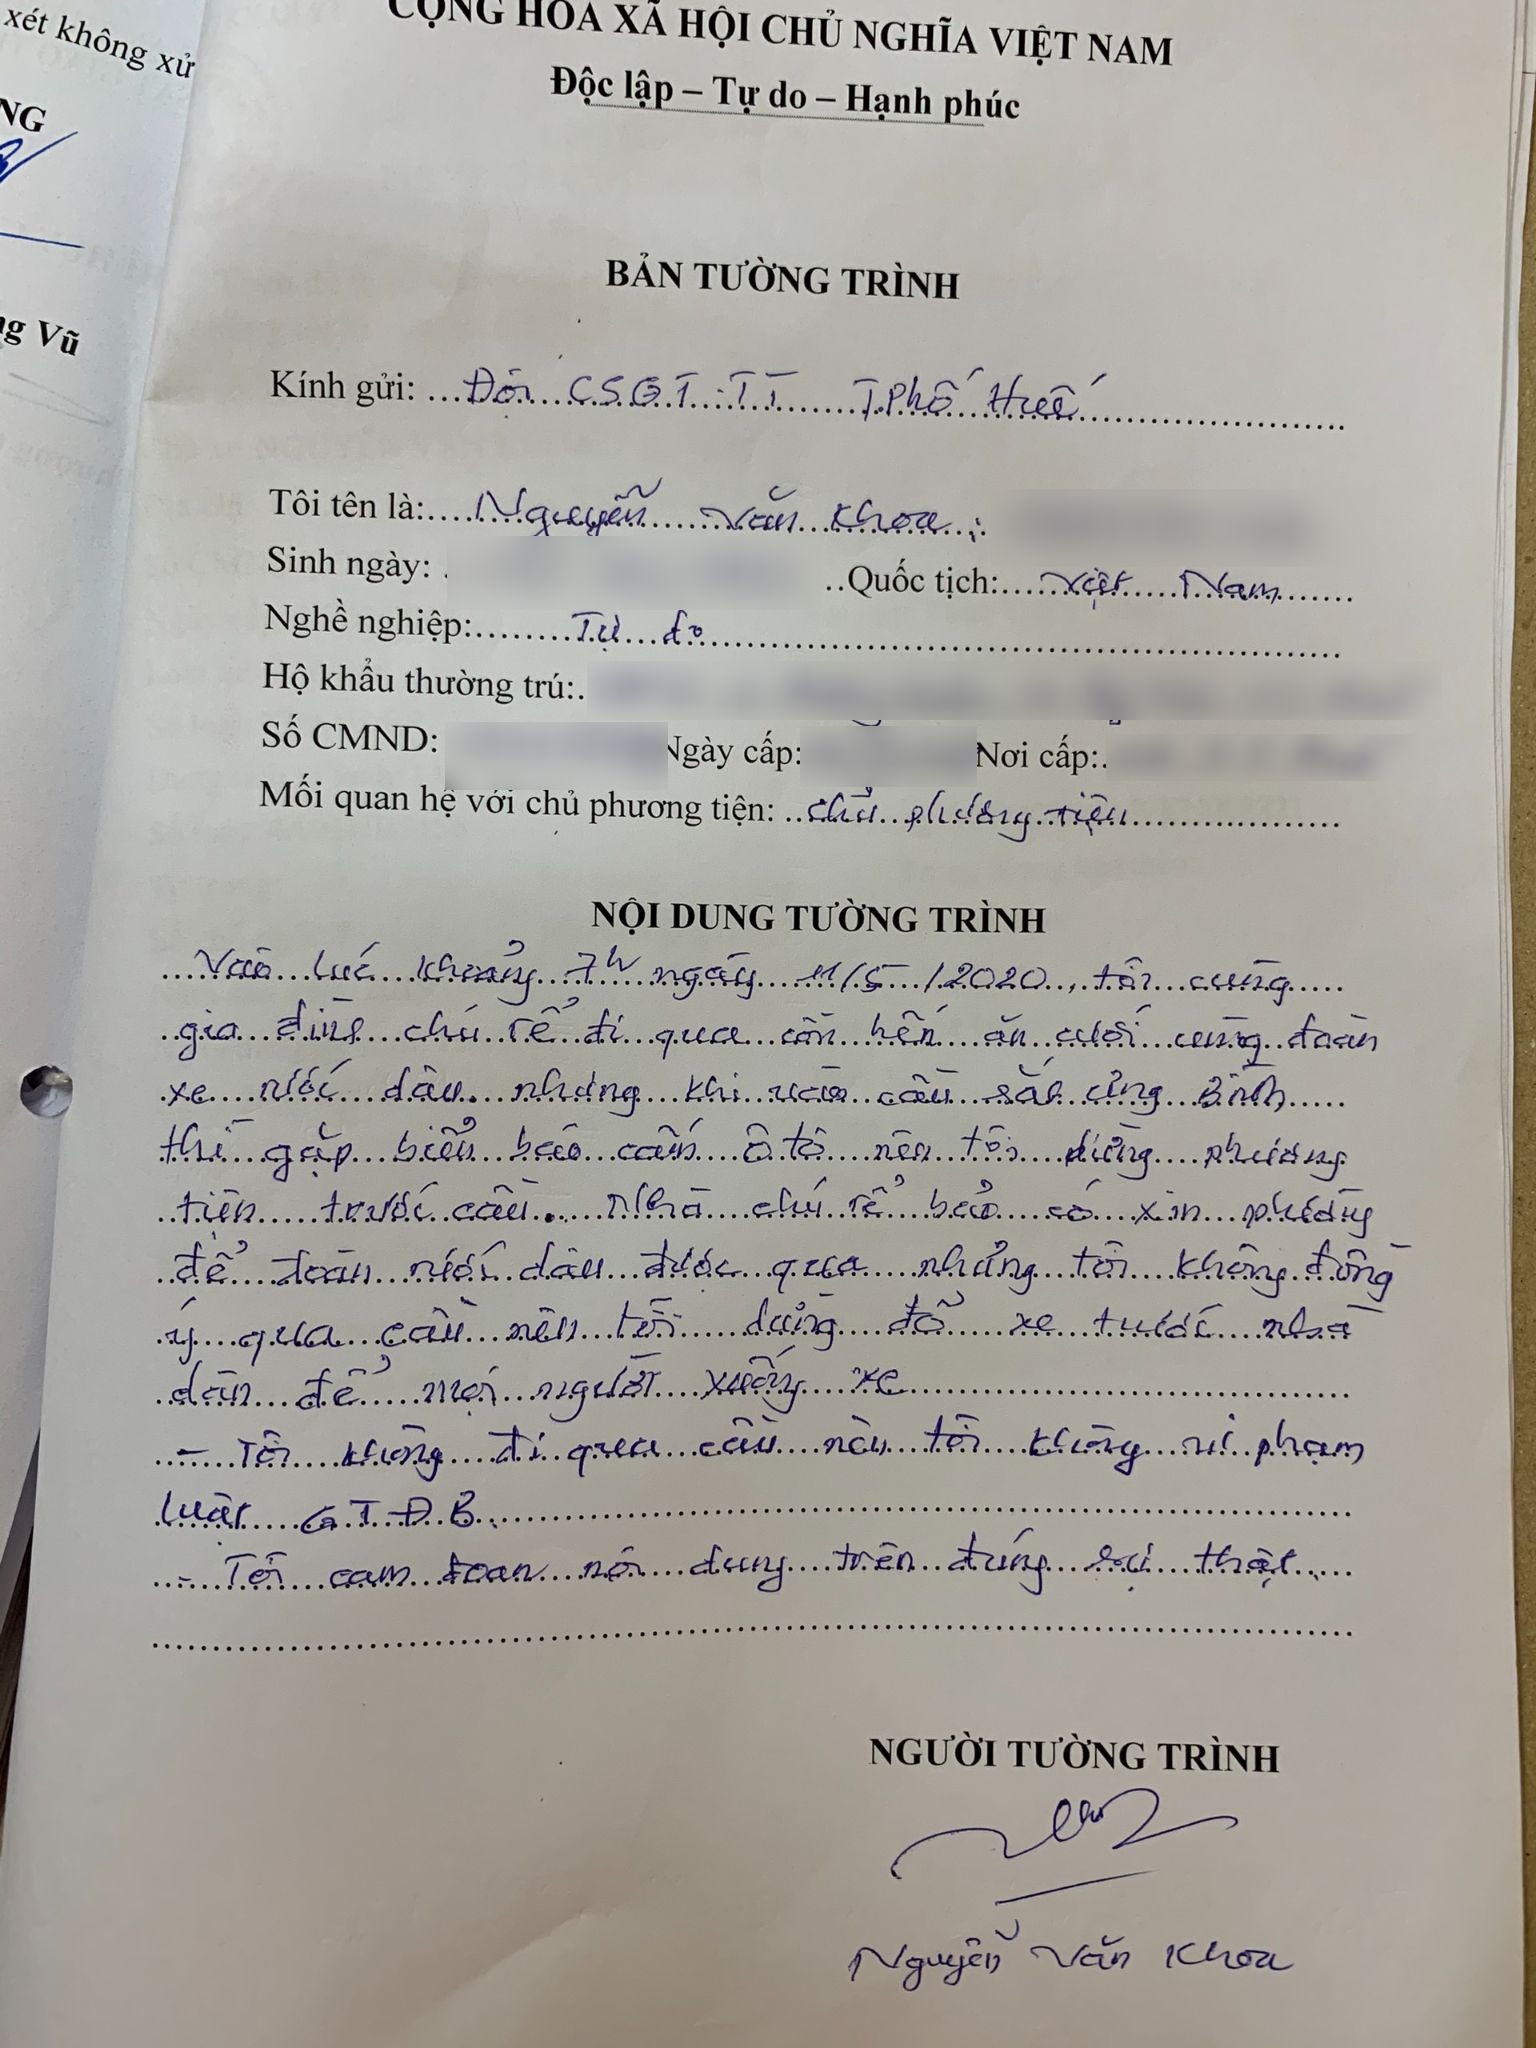 xét không xử
NG
ng Vũ
CỘNG HÒA XÃ HỘI CHỦ NGHĨA VIỆT NAM
Độc lập – Tự do – Hạnh phúc
BẢN TƯỜNG TRÌNH
Kính gửi: Đội CSGT-TT T.Phố Huế
Tôi tên là: Nguyễn Văn Khoa
Sinh ngày: Quốc tịch: Việt Nam
Nghề nghiệp: Tự do
Hộ khẩu thường trú:
Số CMND: Ngày cấp: Nơi cấp:
Mối quan hệ với chủ phương tiện: chủ phương tiện
NỘI DUNG TƯỜNG TRÌNH
Vào lúc khoảng 7h ngày 11/5/2020, tôi cùng
gia đình chú rể đi qua cồn hến ăn cưới cùng đoàn
xe rước dâu. nhưng khi vào cầu sắt ưng Bình
thì gặp biển báo cấm ô tô nên tôi dừng phương
tiện trước cầu. Nhà chú rể bảo có xin phường
để đoàn rước dâu được qua nhưng tôi không đồng
ý qua cầu nên tôi dừng đỗ xe trước nhà
dân để mọi người xuống xe
- Tôi không đi qua cầu nên tôi không vi phạm
luật GTĐB.
- Tôi cam đoan nội dung trên đúng sự thật.
NGƯỜI TƯỜNG TRÌNH
Nguyễn Văn Khoa